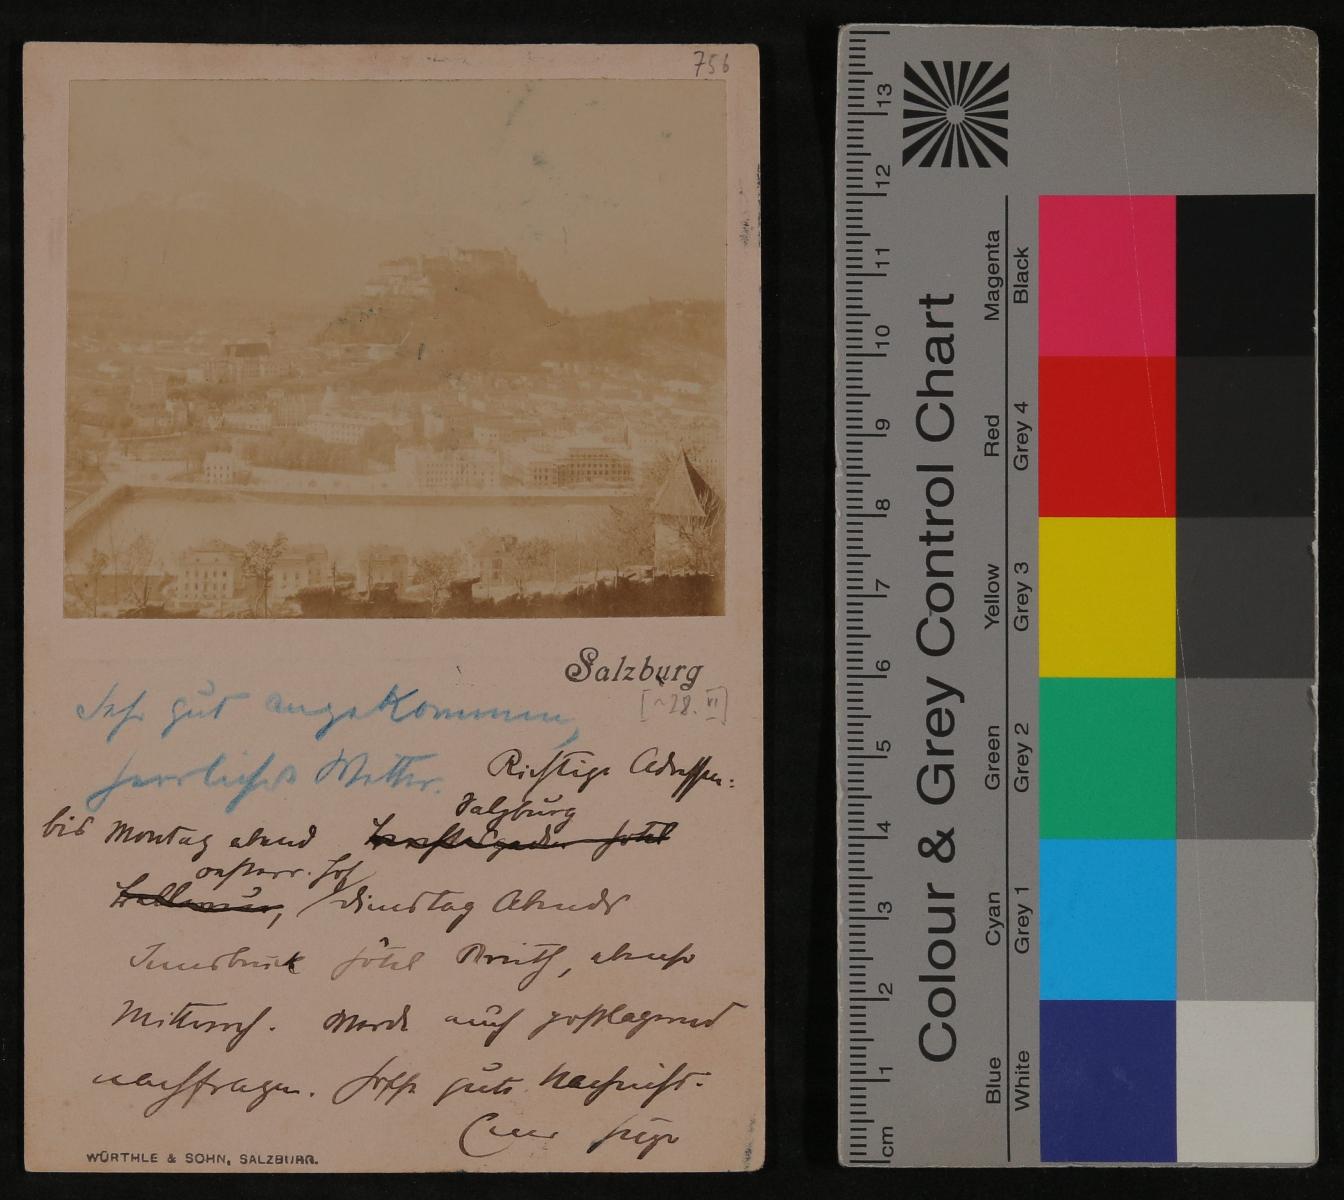 756
Salzburg
[~28. VI]
Sehr gut angekommen,
herrliches Wetter.
Richtige Adressen:
Salzburg
bis Montag abend
Hotel
österr. Hof
Dienstag Abends
Innsbruck Hôtel Kreith, ebenso
Mittwoch. Werde auch postlagernd
nachfragen. Hoffe gute Nachricht.
Euer Hugo
WÜRTHLE & SOHN, SALZBURG.
13
12
11
10
9
8
7
6
5
4
3
2
1
cm
Colour & Grey Control Chart
Magenta
Red
Yellow
Green
Cyan
Blue
Black
Grey 4
Grey 3
Grey 2
Grey 1
White